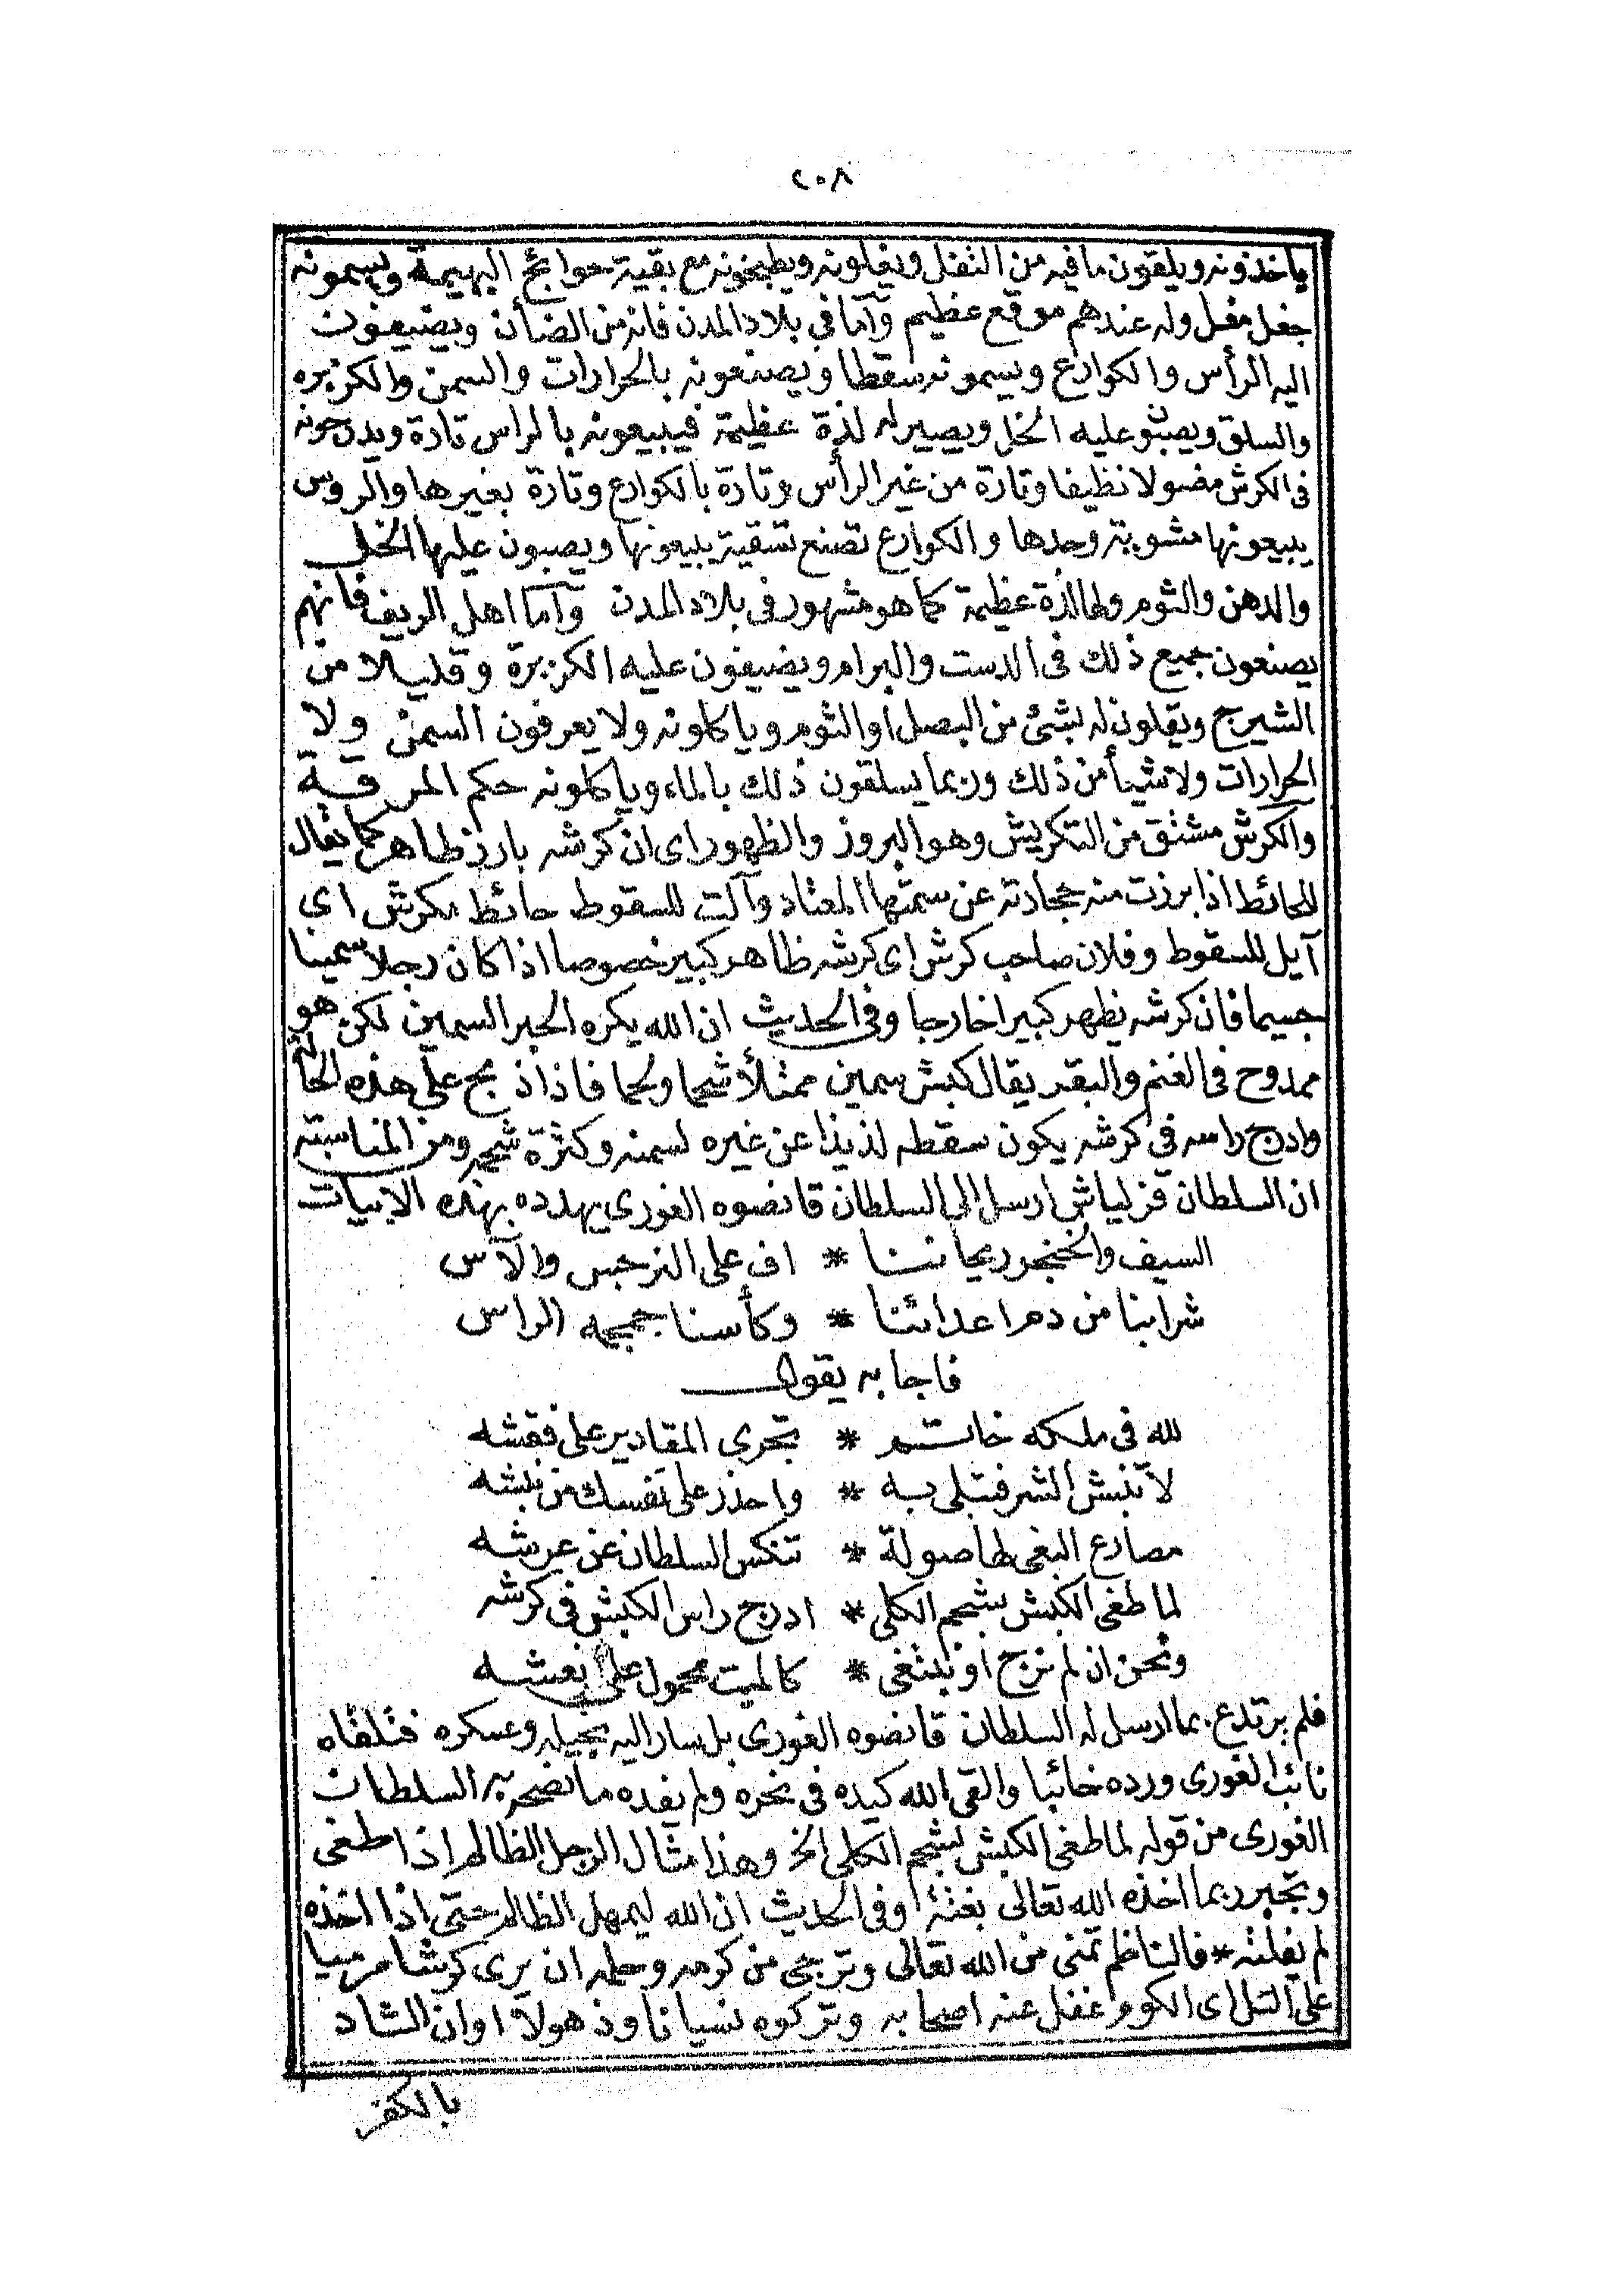 ٢٠٨
ياخذونه ويلقون ما فيه من التفل ويغلونه ويطبخونه مع بقية حوائج البهيمة ويسمونه
جغل مغل وله عندهم موقع عظيم وآما في بلاد المدن فانه من الضأن ويضيفون
اليه الرأس والكوارع ويسمونه سقطا ويصنعونه بالحرارات والسمن والكزبره
والسلق ويصبو عليه الخل ويصير له لذة عظيمة فيبيعونه بالراس تارة ويدرجونه
فى الكرش مغسولا نظيفا وتارة من غير الرأس وتارة بالكوارع وتارة بغيرها والروس
يبيعونها مشوية وحدها والكوارع تصنع تسقية يبيعونها ويصبون عليها الخل
والدهن والثوم ولها لذة عظيمة كما هو مشهور فى بلاد المدن وآما اهل الريف فانهم
يصنعون جميع ذلك فى الدست والبرام ويضيفون عليه الكزبرة وقليلا من
الشيرج ويقلون له بشئ من البصل او الثوم وياكلونه ولا يعرفون السمن ولا
الحرارات ولا شيأ من ذلك وربما يسلقون ذلك بالماء وياكلونه حكم المرقة
والكرش مشتق من التكريش وهو البروز والظهور اى ان كرشه بارز ظاهر كما يقال
للحائط اذا برزت منه حجارته عن سمتها المعتاد وآلت للسقوط حائط مكرش اى
آيل للسقوط وفلان صاحب كرش اى كرشه ظاهر كبير خصوصا اذا كان رجلا سمينا
جسيما فان كرشه يظهر كبيرا خارجا وفى الحديث ان الله يكره الحبر السمين لكن هو
ممدوح فى الغنم والبقر يقال كبش سمين ممتلأ شحما ولحما فاذا ذبح على هذه الحالة
وادرج راسه فى كرشه يكون سقطه لذيذا عن غيره لسمنه وكثرة شحمه ومن المناسبة
ان السلطان قزلباش ارسل الى السلطان قانصوه الغورى يهدده بهذه الابيات
السيف والخنجر ريحاننا * اف على النرجس والآس
شرابنا من دم اعدائنا * وكأسنا جمجمه الراس
فاجابه يقول
لله فى ملكه خاتم * تجرى المقادير على نقشه
لا تنبش الشر فتبلى به * واحذر على نفسك من نبشه
مصارع البغى لها صولة * تنكس السلطان عن عرشه
لما طغى الكبش بشحم الكلى * ادرج راس الكبش فى كرشه
ونحن ان لم نرج او نبتغى * كالميت محمول على نعشه
فلم يرتدع بما ارسل له السلطان قانصوه الغورى بل سار اليه بخيله وعسكره فتلقاه
نائب الغورى ورده خائبا والقى الله كيده فى نحره ولم يفده ما نصحه به السلطان
الغورى من قوله لما طغى الكبش بشحم الكلى الخ وهذا مثال الرجل الظالم اذا طغى
وتجبر ربما اخذه الله تعالى بغتة وفى الحديث ان الله ليمهل الظالم حتى اذا اخذه
لم يفلته * فالناظم تمنى من الله تعالى وترجى من كرمه وحلمه ان يرى كرشا مرميا
على التل اى الكوم وغفل عنه اصحابه وتركوه نسيانا وذهولا او ان الشاد
بالكفر